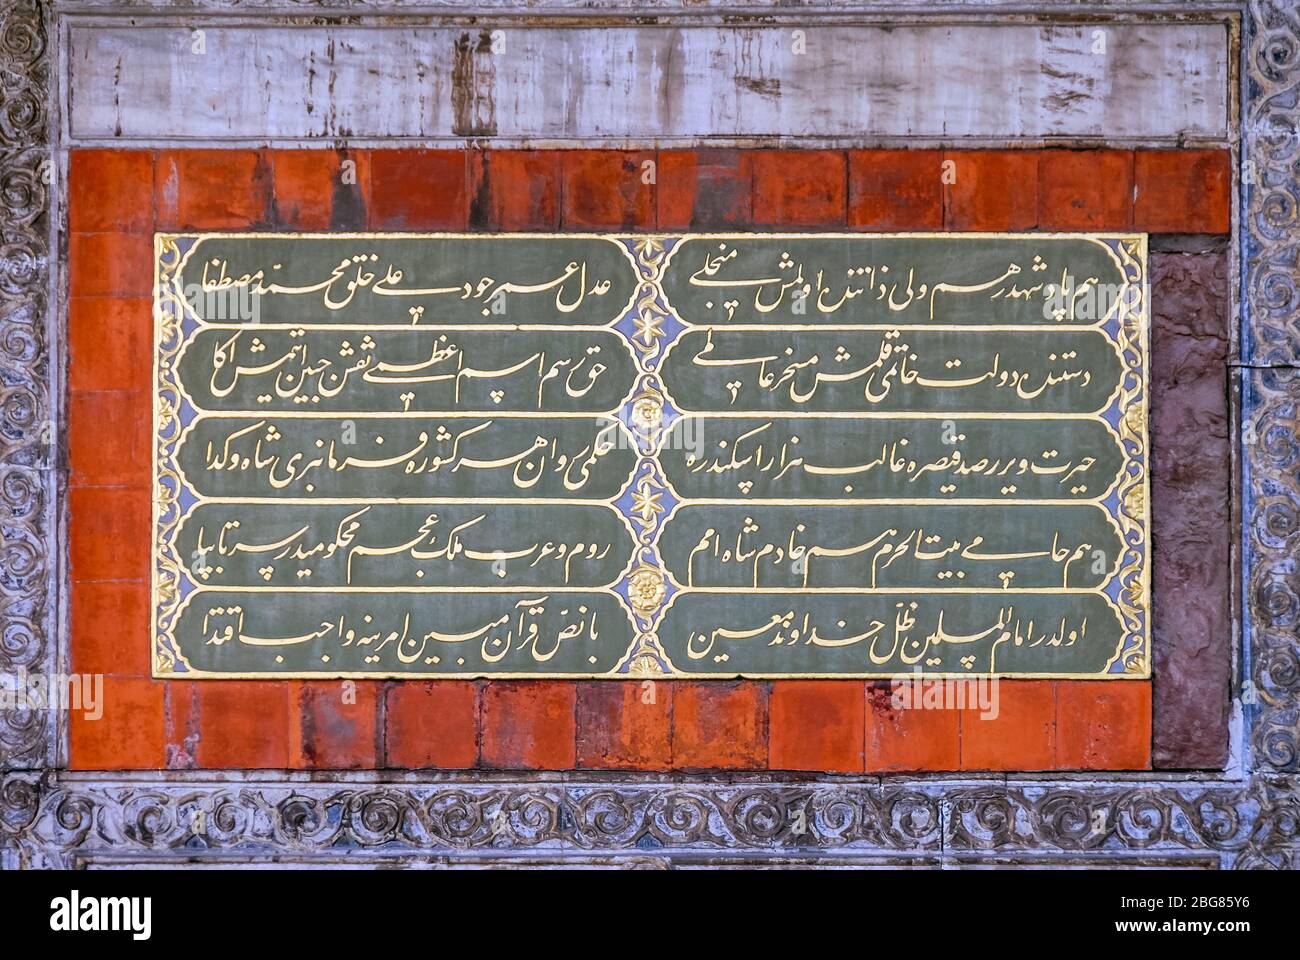 هم پادشهدر هم ولی ذاتنده اولمش منجلی
عدل عمر جود علی خلق محمد مصطفا
دستنده دولت خاتمی قلمش مسخر عالمی
حق رسم اسم اعظمی نقش جبین ایتمش اکا
حیرت ویرر صد قیصره غالب هزار اسکندره
حکمی روان هر کشوره فرمانبری شاه و کدا
هم حامی بیت الحرم هم خادم شاه امم
روم و عرب ملک عجم محکومیدر سر تا بپا
اولدر امام المسلمین ظل خداوند معین
با نص قرآن مبین امرینه واجب اقتدا
alamy
Image ID: 2BG85Y6
www.alamy.com